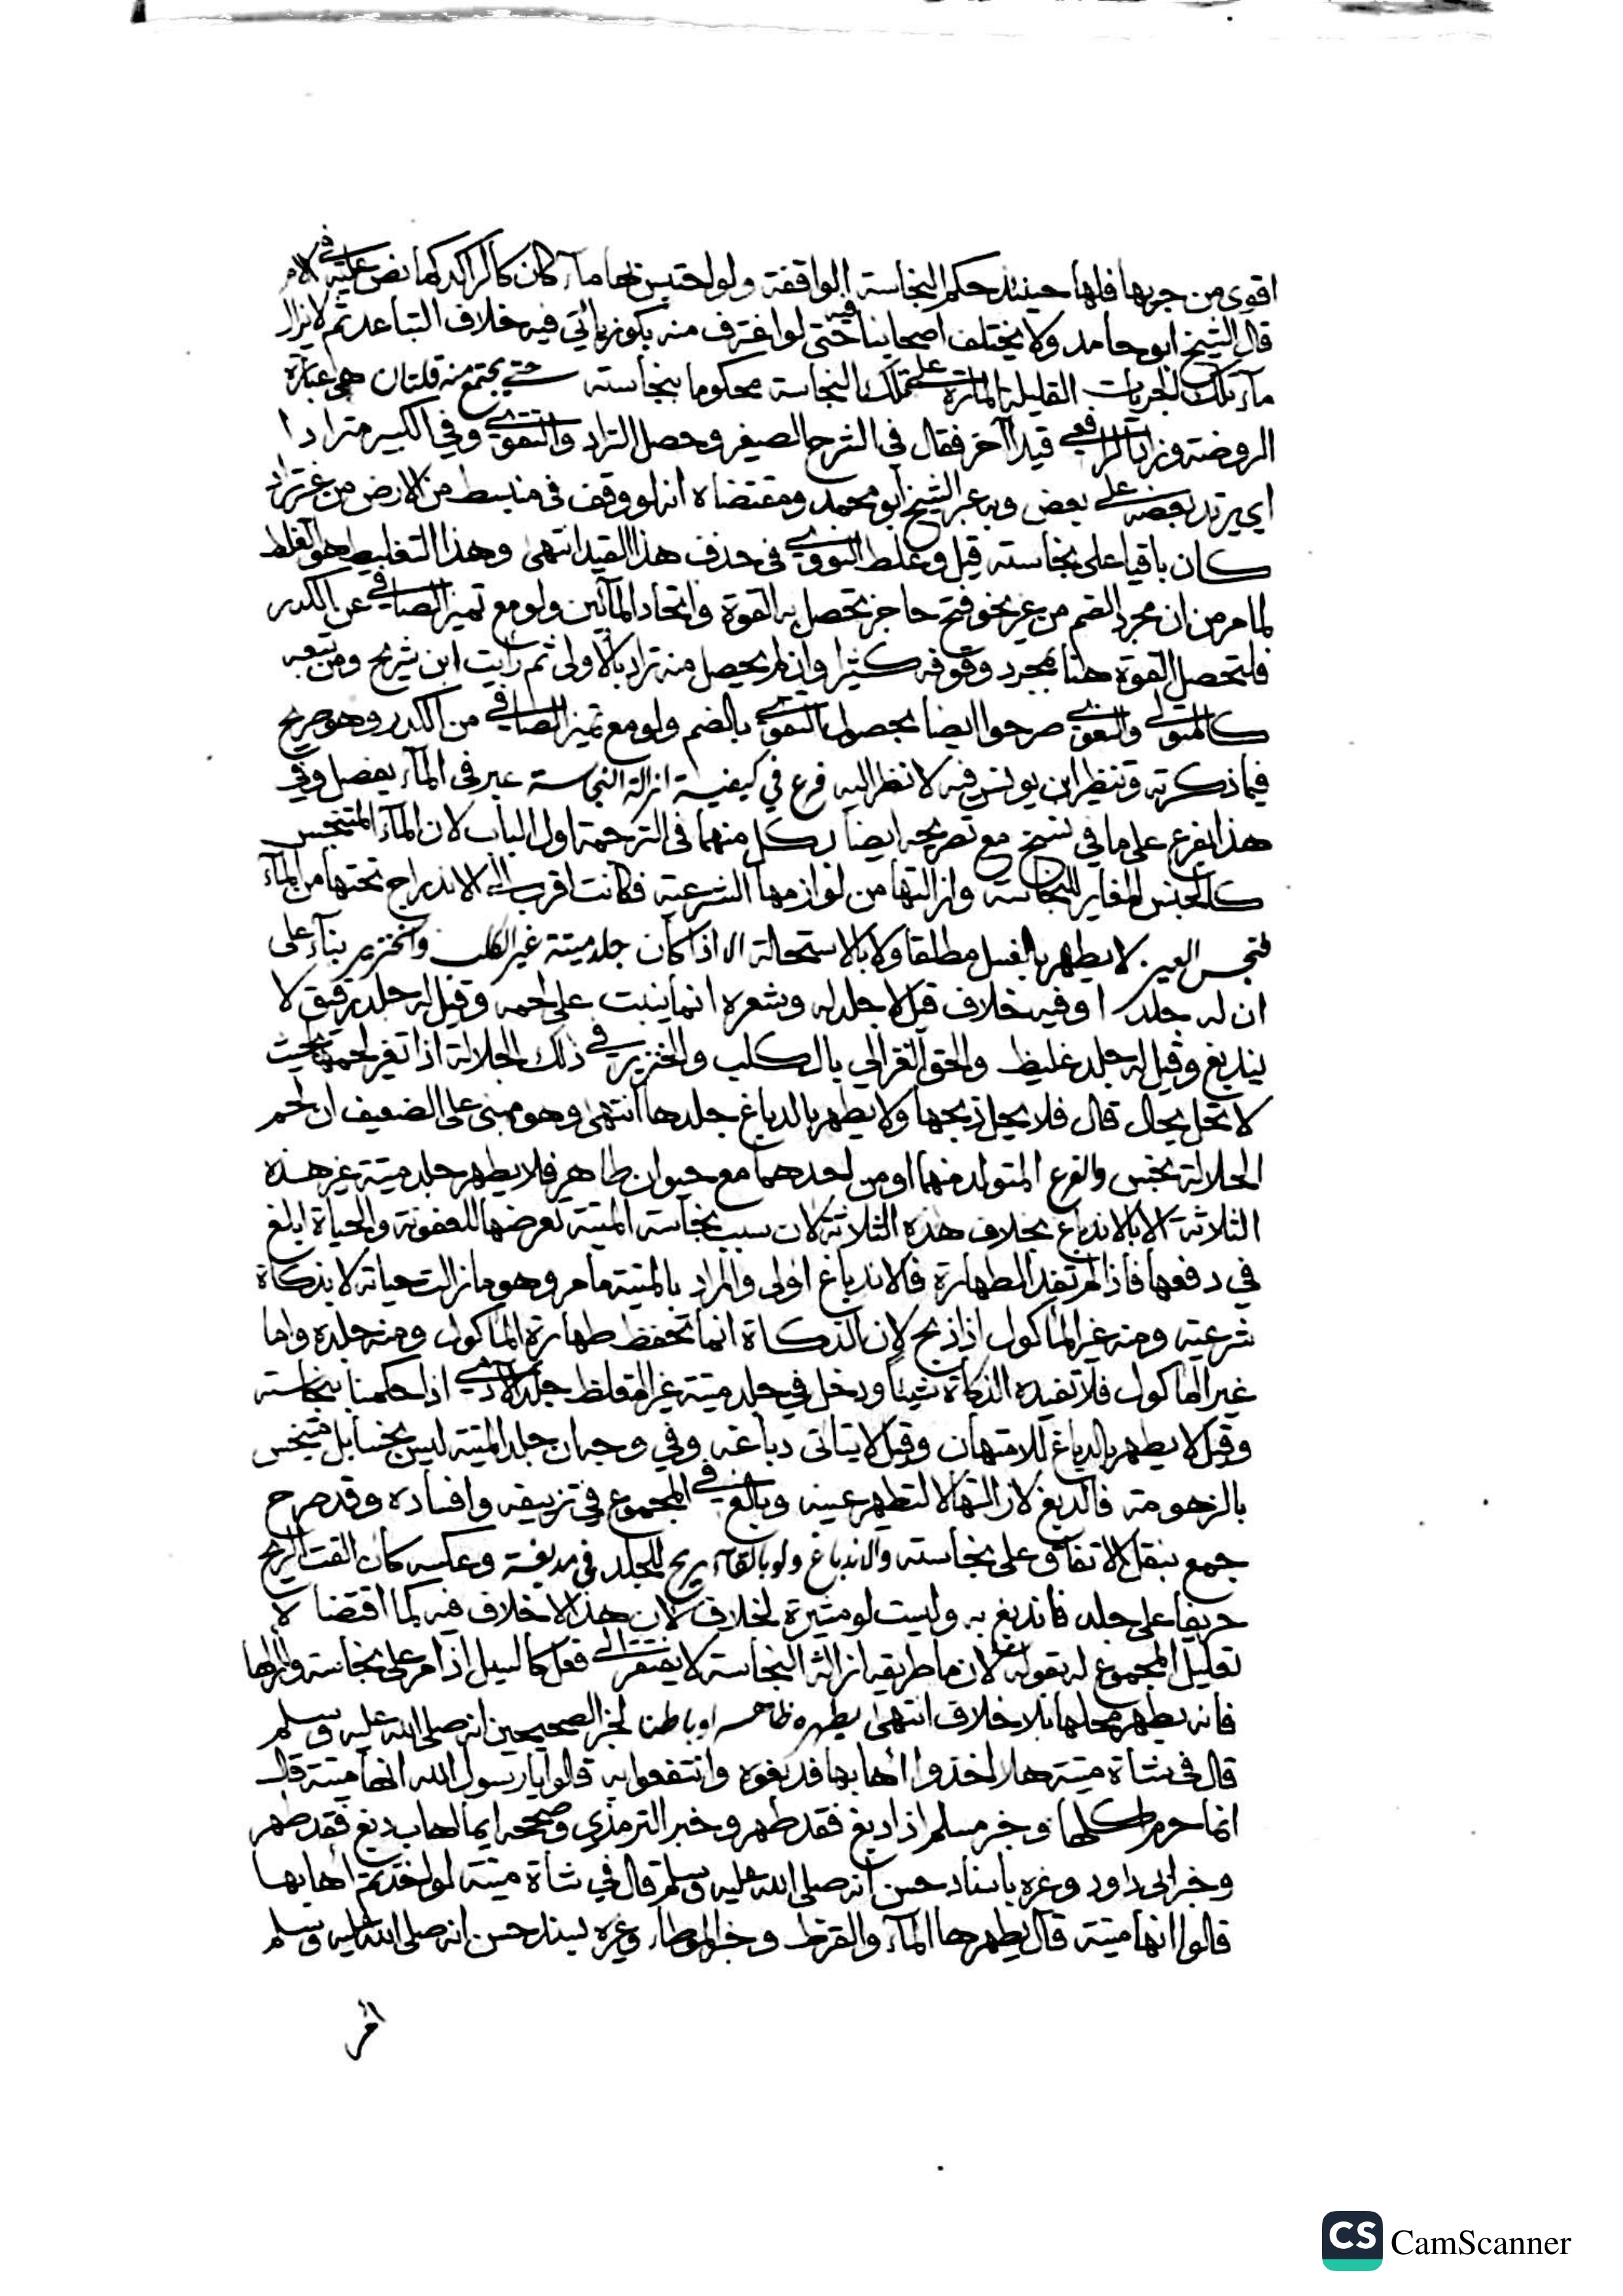 اقوى من جريها فلها حينئذ حكم النجاسة الواقفة ولو احتبس بها ماء كان كالراكد كما نص عليه في الام
قال الشيخ ابو حامد ولا يختلف اصحابنا فيه حتى لو اغترف منه بكوز ياتي فيه خلاف التباعد ثم لا يزال
ماء تلك الجريات القليلة المارة على تلك النجاسة محكوما بنجاسته حتى يجتمع منه قلتان هي عبارة
الروضة وزاد الرافعي قيدا آخر فقال في الشرح الصغير وحصل التراد والتقوي وفي الكبير مترادا
اي يرتد بعضه على بعض وبه عبر الشيخ ابو محمد ومقتضاه انه لو وقف في منبسط من الارض من غير تراد
كان باقيا على نجاسته قيل وغلط النووي في حذف هذا القيد انتهى وهذا التغليط هو الغلط
لما مر من ان مجرد الضم من غير نحو فتح حاجز تحصل به القوة واتحاد المآئين ولو مع تميز الصافي عن الكدر
فلتحصل القوة هنا بمجرد وقوفه كثيرا وان لم يحصل منه تراد بالاولى ثم رايت ابن شريح ومن تبعه
كالمتولي والبغوي صرحوا ايضا بحصول التقوي بالضم ولو مع تميز الصافي من الكدر وهو صريح
فيما ذكرته وتنظير ابن يونس فيه لا نظر اليه فرع في كيفية ازالة النجاسة عبر في الماء بفصل وفي
هذا بفرع على ما في نسخ مع تصريحه ايضا بكل منهما في الترجمة اول الباب لان الماء المتنجس
كالجنس المغاير للنجاسة وازالتها من لوازمها الشرعية فكانت اقرب الى الاندراج تحتها من الماء
نجس العين لا يطهر بالغسل مطلقا ولا بالاستحالة الا اذا كان جلد ميتة غير الكلب والخنزير بناء على
ان له جلدا وفيه خلاف قيل لا جلد له وشعره انما ينبت على لحمه وقيل له جلد رقيق لا
يندبغ وقيل له جلد غليظ والحق الغزالي بالكلب والخنزير في ذلك الجلالة اذا تغير لحمها بحيث
لا تحل بحال قال فلا يحل ذبحها ولا يطهر بالدباغ جلدها انتهى وهو مبني على الضعيف ان لحم
الجلالة نجس والفرع المتولد منهما او من احدهما مع حيوان طاهر فلا يطهر جلد ميتة غير هذه
الثلاثة الا بالاندباغ بخلاف هذه الثلاثة لان سبب نجاسة الميتة تعرضها للعفونة والحياة ابلغ
في دفعها فاذا لم تفد الطهارة فالاندباغ اولى والمراد بالميتة ما مر وهو ما زالت حياته لا بذكاة
شرعية ومنه غير الماكول اذا ذبح لان الذكاة انما تحفظ طهارة الماكول ومنه جلده واما
غير الماكول فلا تفيده الذكاة شيئا ودخل في جلد ميتة غير المغلظ جلد الآدمي اذا حكمنا بنجاسته
وقيل لا يطهر بالدباغ للامتهان وقيل لا يتاتى دباغه وفي وجه ان جلد الميتة ليس نجسا بل متنجس
بالزهومة فالدبغ لازالتها لا لتطهير عينه وبالغ في المجموع في تزييفه وافساده وقد صرح
جمع بنقل الاتفاق على نجاسته والاندباغ ولو بالقاء ريح للجلد في مدبغة وعكسه كان القت الريح
حريفا على جلد فاندبغ به وليست لو مشيرة لخلاف لان هذا لا خلاف فيه كما اقتضاه
تعليل المجموع له بقوله لان ما طريقه ازالة النجاسة لا يفتقر الى فعل كالسيل اذا مر على نجاسة وازالها
فانه يطهر محلها بلا خلاف انتهى يطهره ظاهرا وباطنا لخبر الصحيحين انه صلى الله عليه وسلم
قال في شاة ميتة هلا اخذوا اهابها فدبغوه وانتفعوا به قالوا يا رسول الله انها ميتة قال
انما حرم اكلها وخبر مسلم اذا دبغ فقد طهر وخبر الترمذي وصححه ايما اهاب دبغ فقد طهر
وخبر ابي داود وغيره باسناد حسن انه صلى الله عليه وسلم قال في شاة ميتة لو اخذتم اهابها
قالوا انها ميتة قال يطهرها الماء والقرظ وخبر الموطاء وغيره بسند حسن انه صلى الله عليه وسلم
امر
CS CamScanner